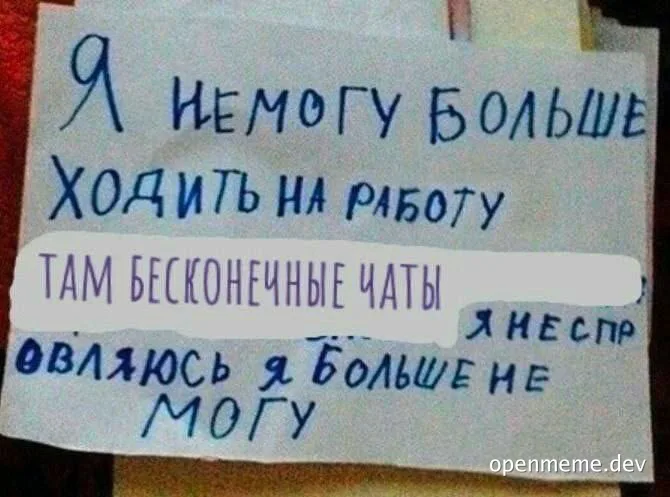 Я НЕМОГУ БОЛЬШЕ
ХОДИТЬ НА РАБОТУ
ТАМ БЕСКОНЕЧНЫЕ ЧАТЫ
Я НЕ СПР
ОВЛЯЮСЬ Я БОЛЬШЕ НЕ
МОГУ
openmeme.dev